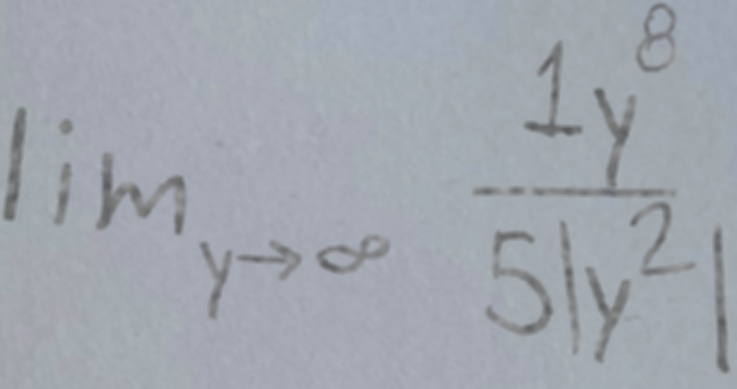 lim_{y→∞} \frac{1y^8}{5|y^2|}